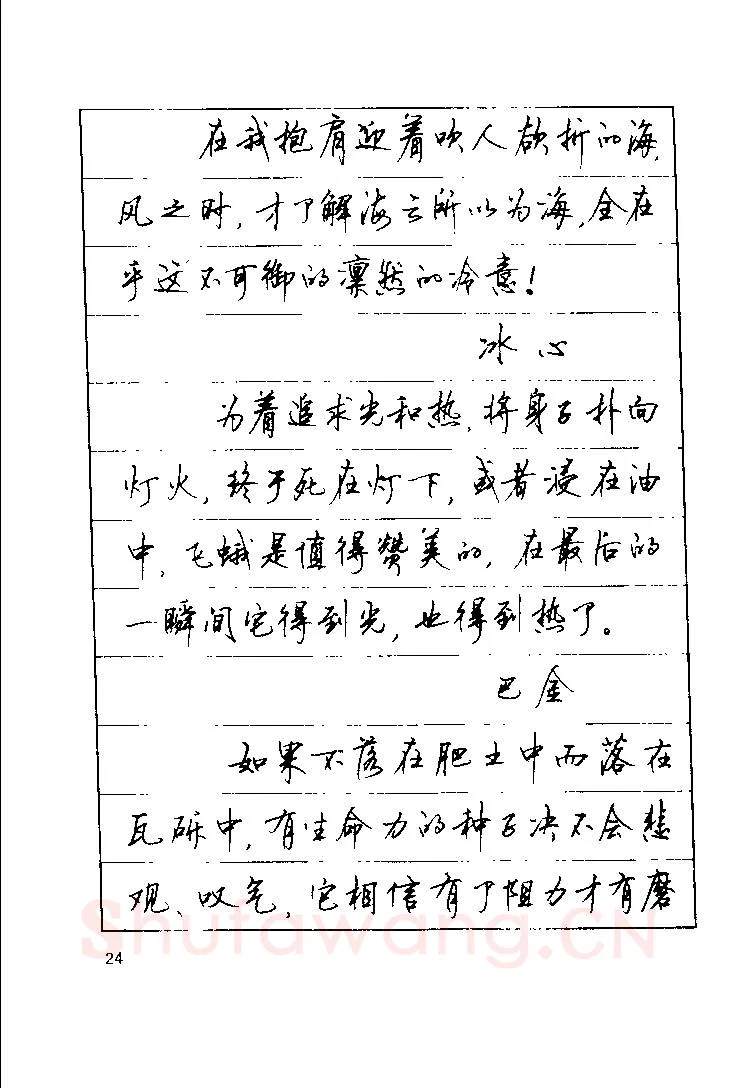 在我抱肩迎着吹人欲折的海
风之时，才了解海之所以为海，全在
乎这不可御的凛然的冷意！
冰心
为着追求光和热，将身子扑向
灯火，终于死在灯下，或者浸在油
中，飞蛾是值得赞美的，在最后的
一瞬间它得到光，也得到热了。
巴金
如果不落在肥土中而落在
瓦砾中，有生命力的种子决不会悲
观、叹气，它相信有了阻力才有磨
Shufawang.CN
24